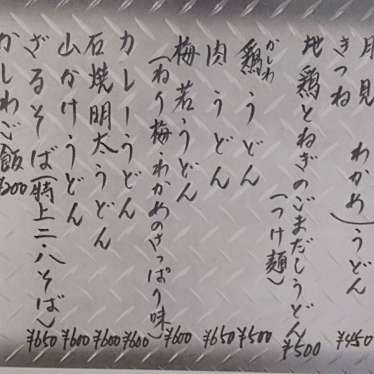 月見
きつね
わかめ)うどん ¥450
地鶏とねぎのごまだしうどん
(つけ麺) ¥500
鶏うどん ¥500
かしわ
肉うどん ¥650
梅若うどん
(ねり梅、わかめのさっぱり味) ¥600
カレーうどん ¥600
石焼明太うどん ¥600
山かけうどん ¥600
ざるそば(特上二・八そば) ¥650
かしわご飯 ¥200